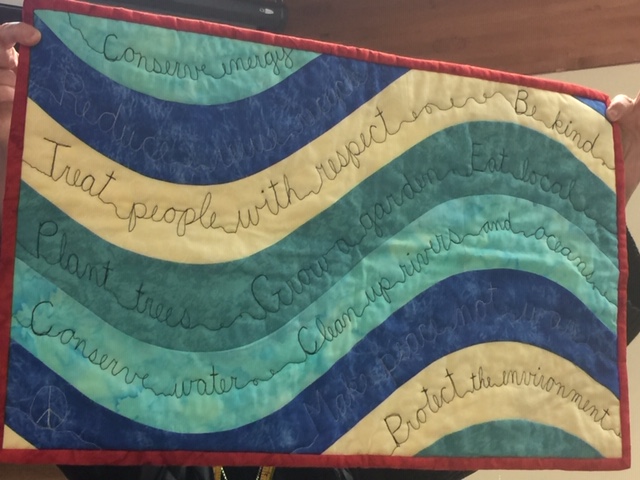 Conserve energy
Reduce
Treat people with respect Be kind
Plant trees Grow a garden Eat local
Conserve water Clean up rivers and oceans
Make peace not war
Protect the environment